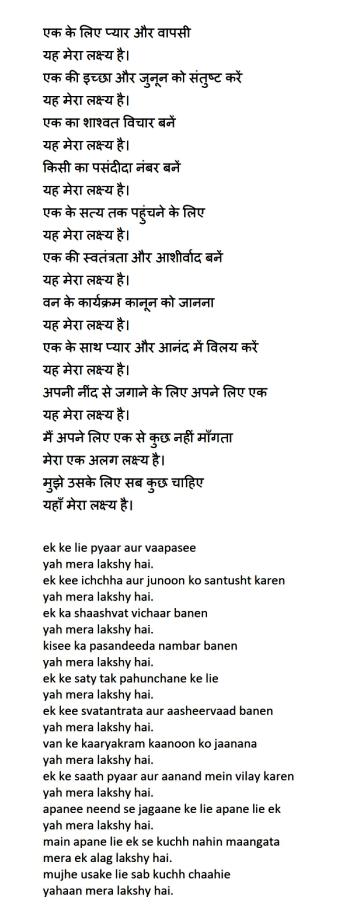 एक के लिए प्यार और वापसी
यह मेरा लक्ष्य है।
एक की इच्छा और जुनून को संतुष्ट करें
यह मेरा लक्ष्य है।
एक का शाश्वत विचार बनें
यह मेरा लक्ष्य है।
किसी का पसंदीदा नंबर बनें
यह मेरा लक्ष्य है।
एक के सत्य तक पहुंचने के लिए
यह मेरा लक्ष्य है।
एक की स्वतंत्रता और आशीर्वाद बनें
यह मेरा लक्ष्य है।
वन के कार्यक्रम कानून को जानना
यह मेरा लक्ष्य है।
एक के साथ प्यार और आनंद में विलय करें
यह मेरा लक्ष्य है।
अपनी नींद से जगाने के लिए अपने लिए एक
यह मेरा लक्ष्य है।
मैं अपने लिए एक से कुछ नहीं माँगता
मेरा एक अलग लक्ष्य है।
मुझे उसके लिए सब कुछ चाहिए
यहाँ मेरा लक्ष्य है।
ek ke lie pyaar aur vaapasee
yah mera lakshy hai.
ek kee ichchha aur junoon ko santusht karen
yah mera lakshy hai.
ek ka shaashvat vichaar banen
yah mera lakshy hai.
kisee ka pasandeeda nambar banen
yah mera lakshy hai.
ek ke saty tak pahunchane ke lie
yah mera lakshy hai.
ek kee svatantrata aur aasheervaad banen
yah mera lakshy hai.
van ke kaaryakram kaanoon ko jaanana
yah mera lakshy hai.
ek ke saath pyaar aur aanand mein vilay karen
yah mera lakshy hai.
apanee neend se jagaane ke lie apane lie ek
yah mera lakshy hai.
main apane lie ek se kuchh nahin maangata
mera ek alag lakshy hai.
mujhe usake lie sab kuchh chaahie
yahaan mera lakshy hai.